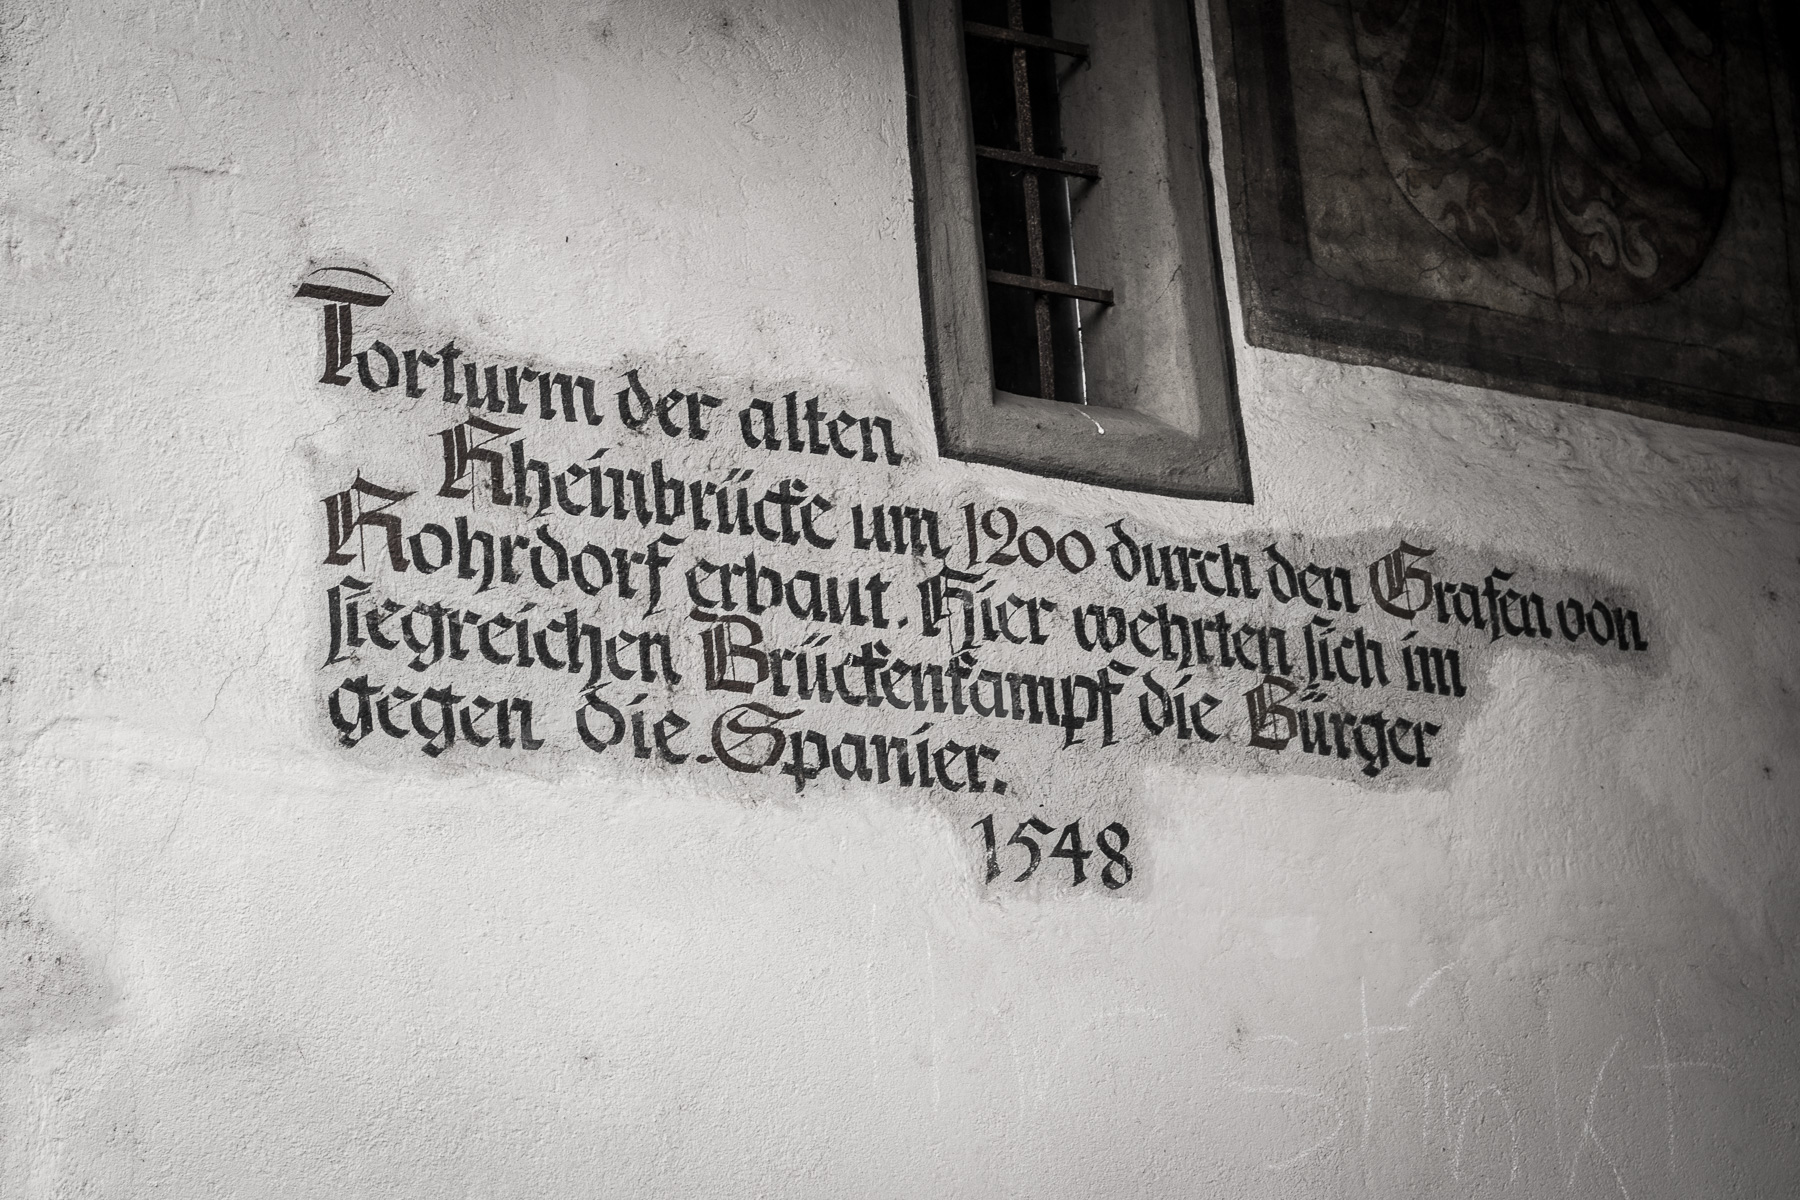 Torturm der alten
Rheinbrücke um 1200 durch den Grafen von
Rohrdorf erbaut. Hier wehrten sich im
siegreichen Brückenkampf die Bürger
gegen die Spanier.
1548
stinkt